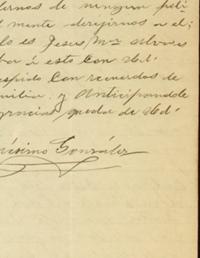 ternos de ningun
mente dirijirnos a el;
lo es Jesus, Mª
a esto con Ud.
espido con recuerdos de
milia y anticipandole
gracias queda de Ud.
González